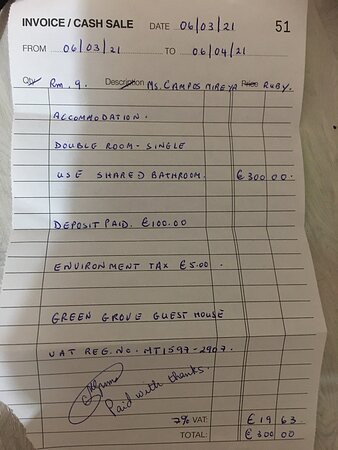 INVOICE / CASH SALE DATE 06/03/21 51
FROM 06/03/21 TO 06/04/21
Qty Rm. 9. Description Ms. CAMPOS MIREYA Price RUBY.
ACCOMMODATION.
DOUBLE ROOM - SINGLE
USE SHARED BATHROOM. €300 00.
DEPOSIT PAID. €100.00
ENVIRONMENT TAX €5.00.
GREEN GROVE GUEST HOUSE
VAT REG. NO. MT1597-2907.
Paid with thanks.
7% VAT: € 19 63
TOTAL: € 300 00